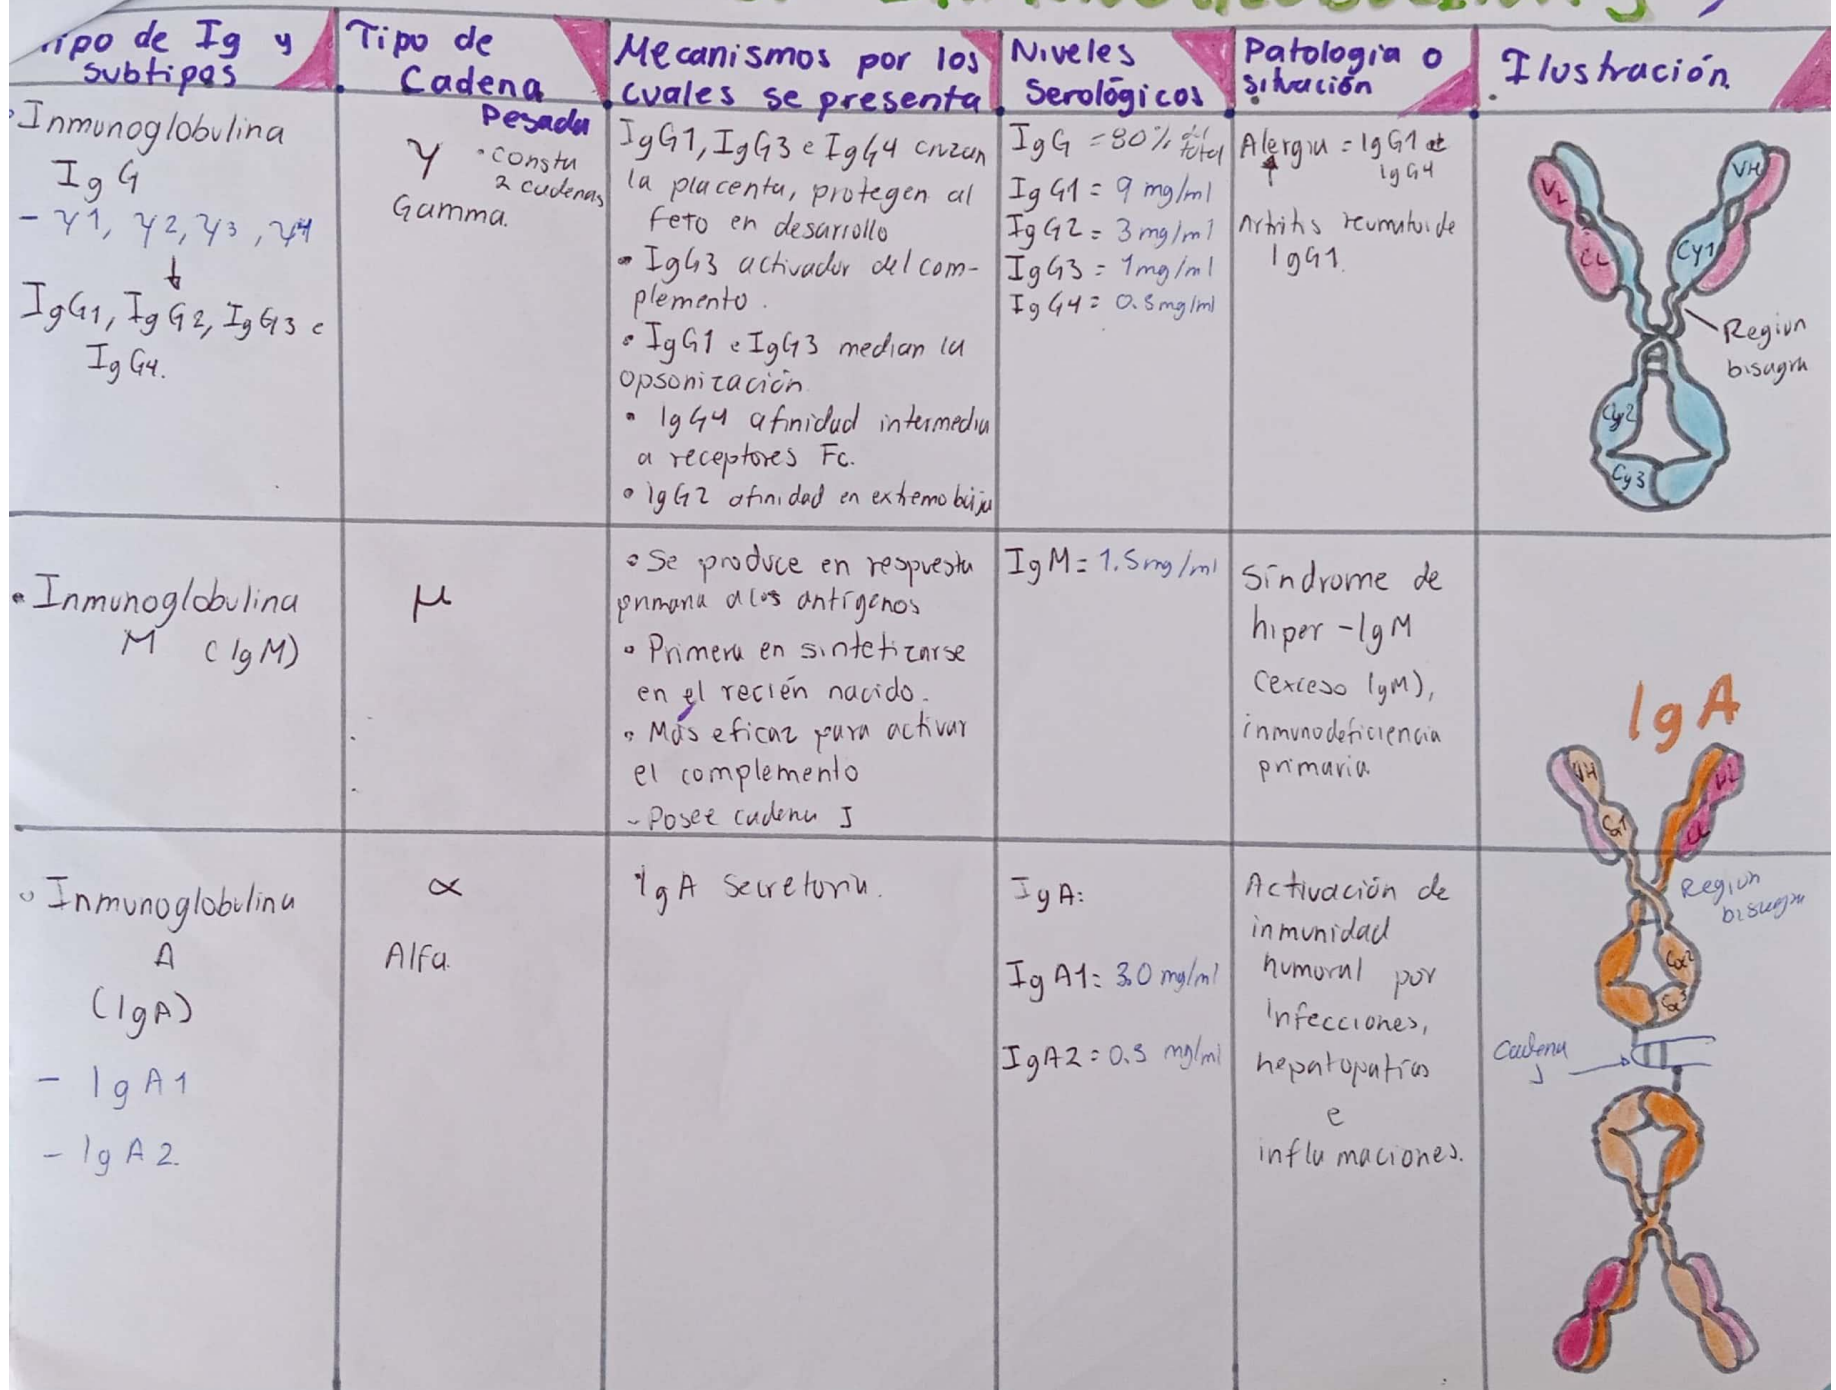 Tipo de Ig y
subtipos
Tipo de
Cadena
Pesada
Mecanismos por los
cuales se presenta
Niveles
Serológicos
Patología o
situación
Ilustración
Inmunoglobulina
IgG
- γ1, γ2, γ3, γ4
↓
IgG1, IgG2, IgG3 e
IgG4.
γ
• consta
2 cadenas
Gamma.
IgG1, IgG3 e IgG4 cruzan
la placenta, protegen al
feto en desarrollo
• IgG3 activador del com-
plemento.
• IgG1 e IgG3 median la
opsonización
• IgG4 afinidad intermedia
a receptores Fc.
• IgG2 afinidad en extremo baja
IgG = 80% del
total
IgG1 = 9 mg/ml
IgG2 = 3 mg/ml
IgG3 = 1mg/ml
IgG4 = 0.5mg/ml
Alergia = IgG1
↑ IgG4
Artritis reumatoide
IgG1.
VL
CL
VH
Cγ1
Region
bisagra
Cγ2
Cγ3
• Inmunoglobulina
M (IgM)
μ
• Se produce en respuesta
primaria a los antígenos
• Primera en sintetizarse
en el recién nacido.
• Más eficaz para activar
el complemento
- Posee cadena J
IgM = 1.5mg/ml
Síndrome de
hiper-IgM
(exceso IgM),
inmunodeficiencia
primaria
• Inmunoglobulina
A
(IgA)
- IgA1
- IgA2.
α
Alfa.
IgA secretoria.
IgA:
IgA1: 3.0 mg/ml
IgA2 = 0.5 mg/ml
Activación de
inmunidad
humoral por
infecciones,
hepatopatías
e
inflamaciones.
IgA
VH
Cα1
VL
CL
Region
bisagra
Cα2
Cα3
Cadena
J